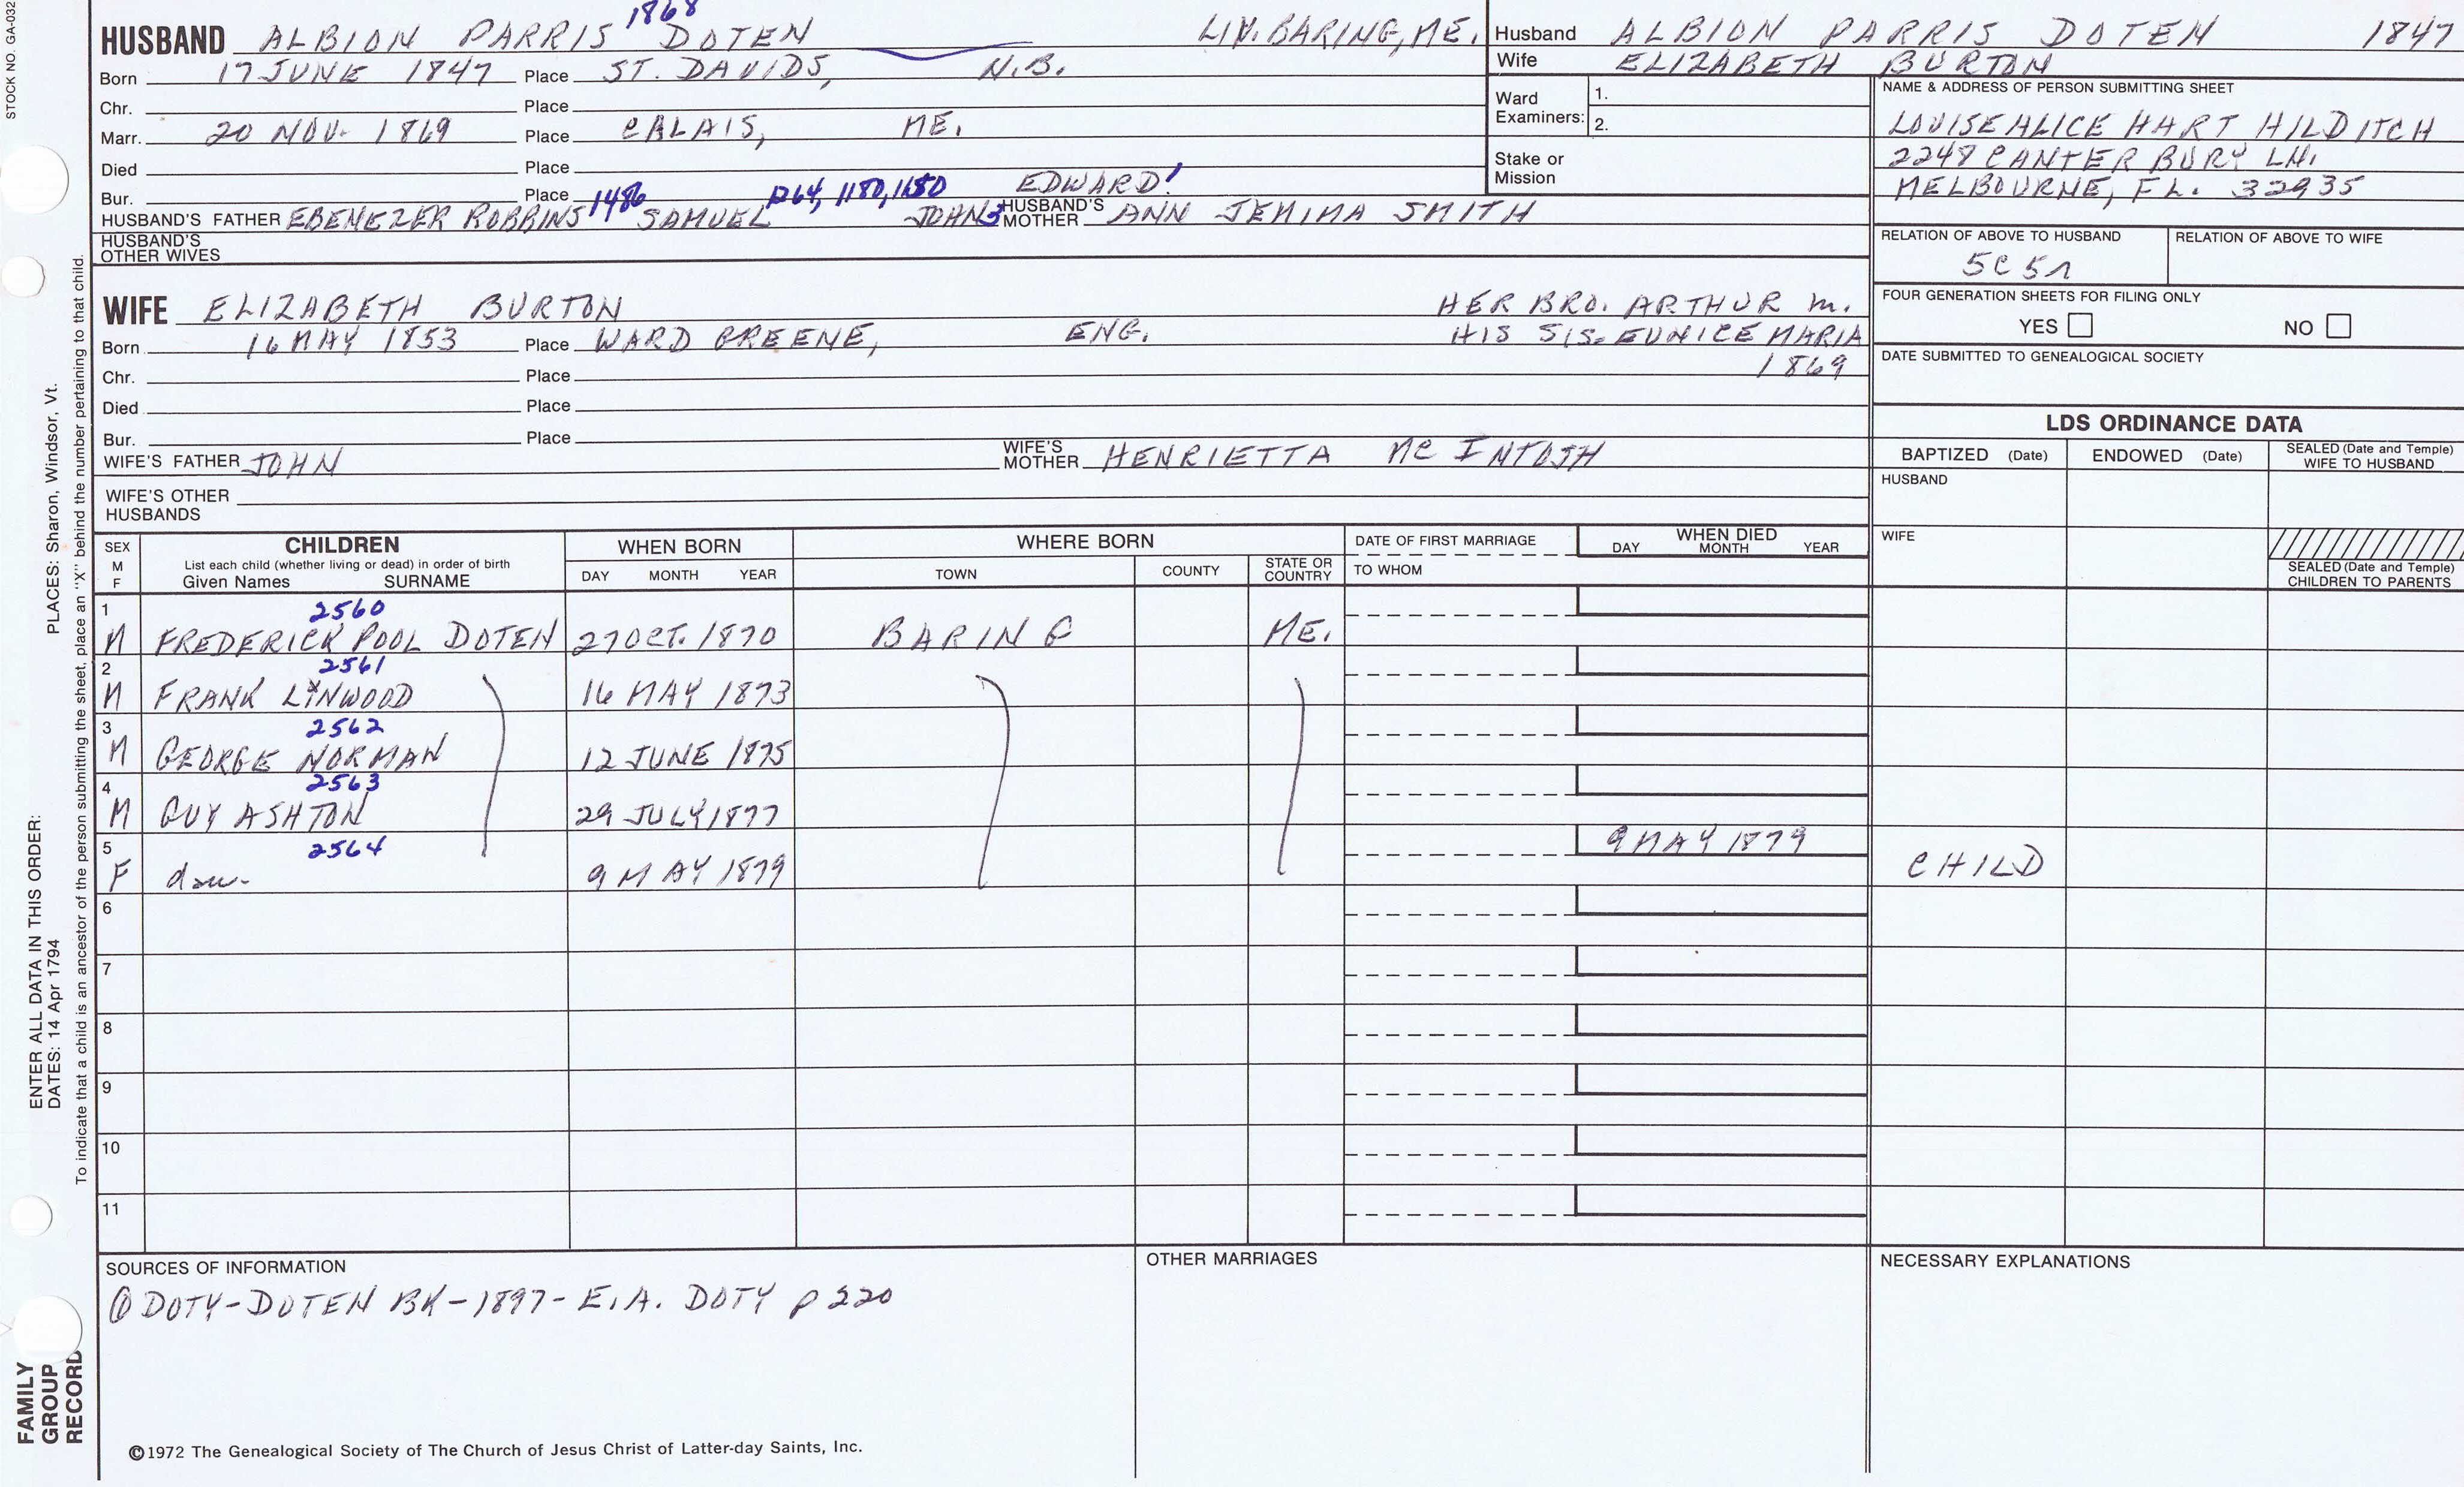 STOCK NO. GA-032
1868
HUSBAND ALBION PARRIS DOTEN LIV. BARING, ME.
Born 17 JUNE 1847 Place ST. DAVIDS, N.B.
Chr. Place
Marr. 20 NOV. 1869 Place CALAIS, ME.
Died Place
Bur. Place
1486 1264, 1180, 1150 EDWARD1
HUSBAND'S FATHER EBENEZER ROBBINS SAMUEL JOHN3 HUSBAND'S MOTHER ANN JEMIMA SMITH
HUSBAND'S OTHER WIVES
WIFE ELIZABETH BURTON HER BRO. ARTHUR m.
Born 16 MAY 1853 Place WARD GREENE, ENG. HIS SIS. EUNICE MARIA
1869
Chr. Place
Died Place
Bur. Place
WIFE'S FATHER JOHN WIFE'S MOTHER HENRIETTA MC INTOSH
WIFE'S OTHER HUSBANDS
Husband ALBION PARRIS DOTEN 1847
Wife ELIZABETH BURTON
Ward Examiners: 1.
2.
Stake or Mission
NAME & ADDRESS OF PERSON SUBMITTING SHEET
LOUISE ALICE HART HILDITCH
2248 CANTERBURY LN.
MELBOURNE, FL. 32935
RELATION OF ABOVE TO HUSBAND RELATION OF ABOVE TO WIFE
5C 5r
FOUR GENERATION SHEETS FOR FILING ONLY
YES NO
DATE SUBMITTED TO GENEALOGICAL SOCIETY
LDS ORDINANCE DATA
BAPTIZED (Date) ENDOWED (Date) SEALED (Date and Temple) WIFE TO HUSBAND
HUSBAND
WIFE
SEALED (Date and Temple) CHILDREN TO PARENTS
SEX M F CHILDREN
List each child (whether living or dead) in order of birth
Given Names SURNAME
WHEN BORN
DAY MONTH YEAR
WHERE BORN
TOWN COUNTY STATE OR COUNTRY
DATE OF FIRST MARRIAGE
TO WHOM
WHEN DIED
DAY MONTH YEAR
1 2560
M FREDERICK POOL DOTEN 27 OCT. 1870 BARING ME.
2 2561
M FRANK LYNWOOD 16 MAY 1873
3 2562
M GEORGE NORMAN 12 JUNE 1875
4 2563
M GUY ASHTON 29 JULY 1877
5 2564 9 MAY 1879
F dau. 9 MAY 1879 CHILD
6
7
8
9
10
11
SOURCES OF INFORMATION
① DOTY-DOTEN BK-1897- E.A. DOTY p 220
OTHER MARRIAGES
NECESSARY EXPLANATIONS
©1972 The Genealogical Society of The Church of Jesus Christ of Latter-day Saints, Inc.
FAMILY GROUP RECORD
ENTER ALL DATA IN THIS ORDER:
DATES: 14 Apr 1794 PLACES: Sharon, Windsor, Vt.
To indicate that a child is an ancestor of the person submitting the sheet, place an "X" behind the number pertaining to that child.